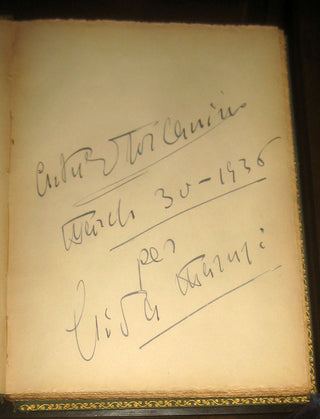 Arturo Toscanini
March 30-1936
per